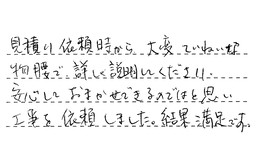 見積り依頼時から 大変ていねいな
物腰で、詳しく説明してくださり、
安心して おまかせできるのではと思い
工事を依頼しました。結果満足です。